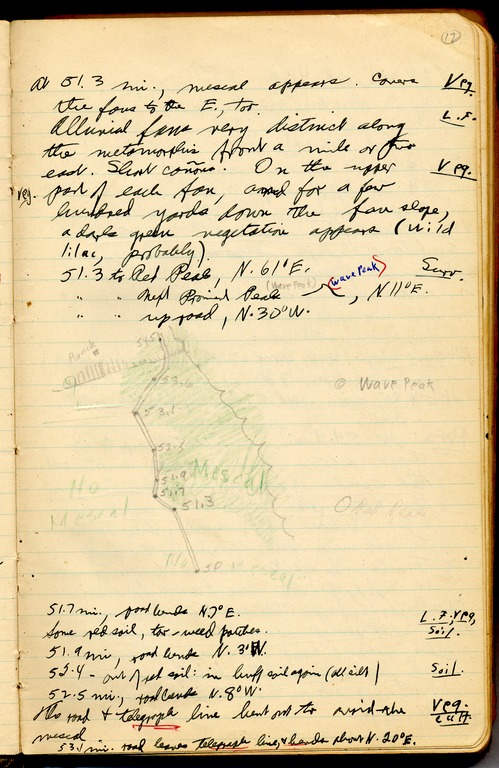 12
At 51.3 mi., mescal appears. Covers Veg.
the fans to the E, too. L.F.
Alluvial fans very distinct along
the metamorphic front a mile or two
east. Slint cañons. On the upper Veg.
Veg. part of each fan, and for a few
hundred yards down the fan slope,
a dark green vegetation appears (wild
lilac, probably).
51.3 to Red Peak, N. 61° E. Surv.
" " Next Promint Peak (Wave Peak) (Wave Peak), N 11° E.
" " up road, N. 30° W.
54.5
Ranch
53.6
53.1
@ Wave Peak
52.5
51.9
Mescal
51.7
No
Mescal
51.3
O Red Peak
50
No Mescal
51.7 mi., road bends N. 7° E. L.F., Veg,
Some red soil, tar-weed patches. Soil.
51.9 mi, road bends N. 3° W.
52.4 - out of red soil: in buff soil again (all silt) Soil.
52.5 mi, road bends N. 8° W.
This road & telegraph line bent out to avoid the Veg.
mescal Cult.
53.1 mi. road leaves telegraph line, & bends about N. 20° E.